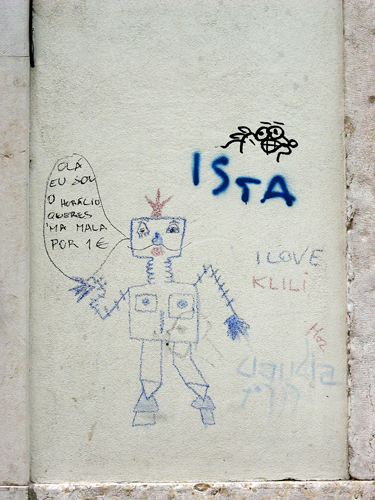 OLÁ
EU SOU
O HORÁCIO
QUERES
'MA MALA
POR 1 €
ISTA
I LOVE
KLILI